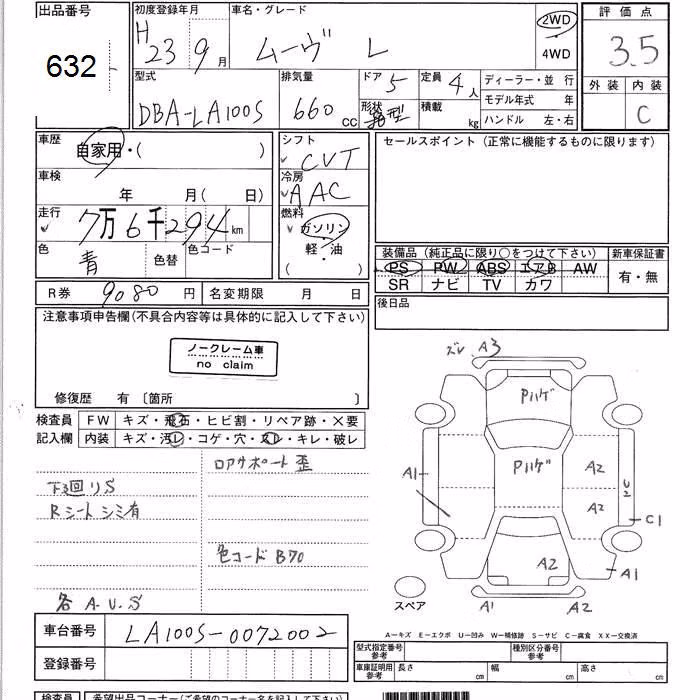 出品番号
632
初度登録年月
H 23 9月
車名・グレード
ムーヴ L
2WD
4WD
評価点
3.5
外装 内装
C
型式
DBA-LA100S
排気量
660 cc
ドア 5
形状 箱型
定員 4人
積載 kg
ディーラー・並行
モデル年式 年
ハンドル 左・右
車歴
自家用・( )
車検
年 月( 日)
走行
7万6千294km
色
青
色替
色コード
シフト
CVT
冷房
AAC
燃料
ガソリン
軽・油
( )
セールスポイント (正常に機能するものに限ります)
装備品 (純正品に限り○をつけて下さい)
新車保証書
PS PW ABS エアB AW
SR ナビ TV カワ
有・無
R券 9080円
名変期限 月 日
後日品
注意事項申告欄(不具合内容等は具体的に記入して下さい)
ノークレーム車
no claim
修復歴 有 〔箇所 〕
検査員
記入欄
FW キズ・飛石・ヒビ割・リペア跡・×要
内装 キズ・汚レ・コゲ・穴・スレ・キレ・破レ
ロアサポート歪
下廻りS
Rシートシミ有
色コードB70
各A.U.S
ズレ A3
Pハゲ
Pハゲ
A1
A2
A2
U2
C1
A1
A2
A1
A2
スペア
A-キズ E-エクボ U-凹み W-補修跡 S-サビ C-腐食 XX-交換済
車台番号
LA100S-0072002
登録番号
型式指定番号
参考
種別区分番号
参考
車庫証明用
参考
長さ cm
幅 cm
高さ cm
検査員
希望出品コーナー(ご希望のコーナー名を記入して下さい)